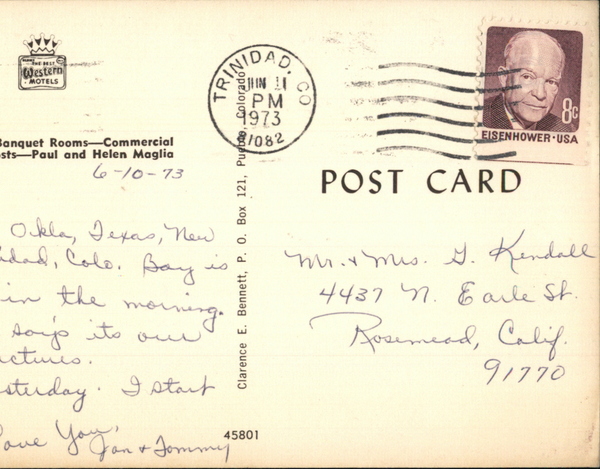 THE BEST
Western
MOTELS
Banquet Rooms—Commercial
sts—Paul and Helen Maglia
6-10-73
Okla, Texas, New
dad, Colo. Bay is
in the morning.
says its our
ctures.
sterday. I start
ove You,
Jan & Tommy
Clarence E. Bennett, P. O. Box 121, Pueblo, Colorado
45801
TRINIDAD, CO
JUN 11
PM
1973
81082
EISENHOWER·USA
8c
POST CARD
Mr. & Mrs. G. Kendall
4437 N. Earle St.
Rosemead, Calif.
91770